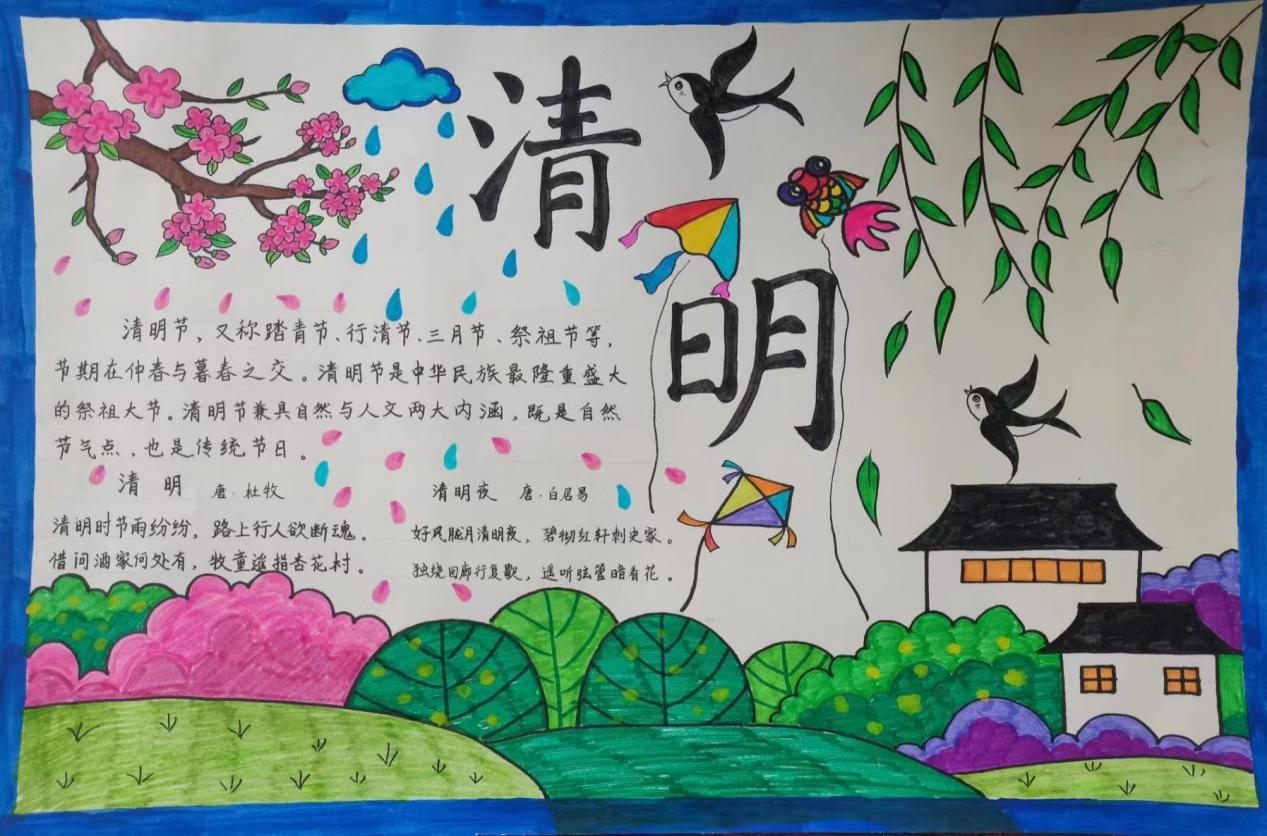 清明
清明节，又称踏青节、行清节、三月节、祭祖节等，
节期在仲春与暮春之交。清明节是中华民族最隆重盛大
的祭祖大节。清明节兼具自然与人文两大内涵，既是自然
节气点，也是传统节日。
清明 唐·杜牧
清明时节雨纷纷，路上行人欲断魂。
借问酒家何处有，牧童遥指杏花村。
清明夜 唐·白居易
好风胧月清明夜，碧彻红轩刺史家。
独绕回廊行复歇，遥听弦管暗看花。